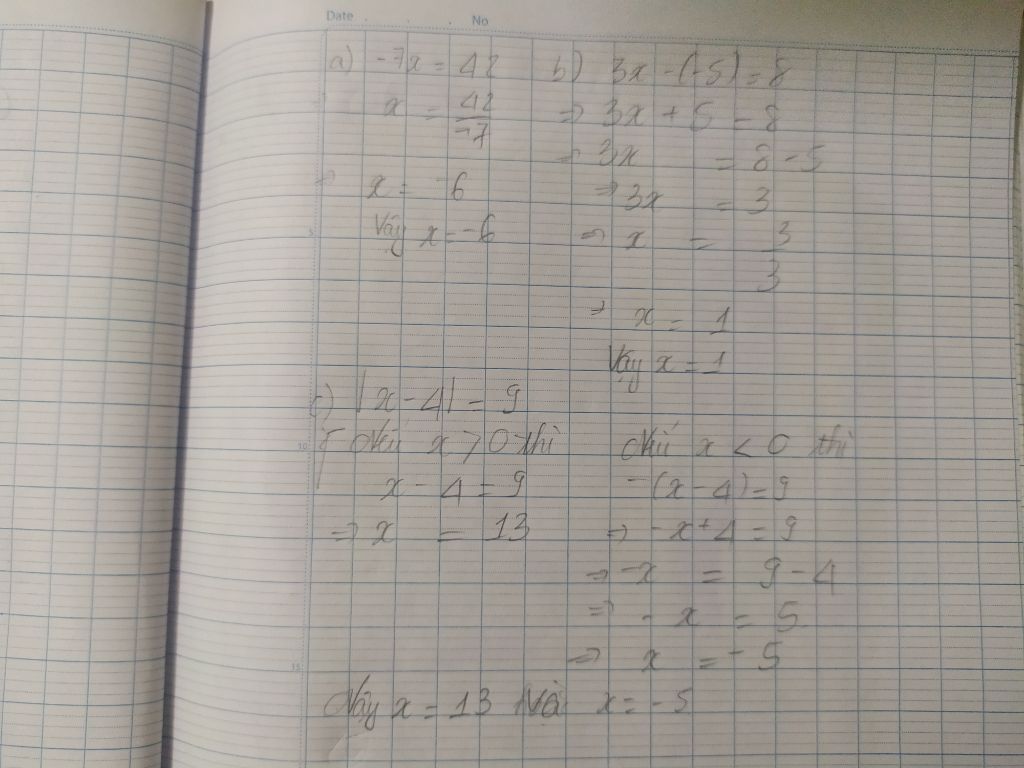 Date . . . . No
a) -7x = 42
x = 42/-7
⇒ x = -6
Vậy x = -6
b) 3x - (-5) = 8
⇒ 3x + 5 = 8
⇒ 3x = 8 - 5
⇒ 3x = 3
⇒ x = 3/3
⇒ x = 1
Vậy x = 1
5
c) |x - 4| = 9
10
Nếu x > 0 thì
x - 4 = 9
⇒ x = 13
Nếu x < 0 thì
-(x - 4) = 9
⇒ -x + 4 = 9
⇒ -x = 9 - 4
⇒ -x = 5
⇒ x = -5
15
Vậy x = 13 Và x = -5